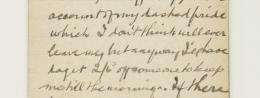 account of my dashed pride
which I don't think will ever
leave me, but anyway I'd have
to get 2/6 off someone to keep
me till the morning. If there